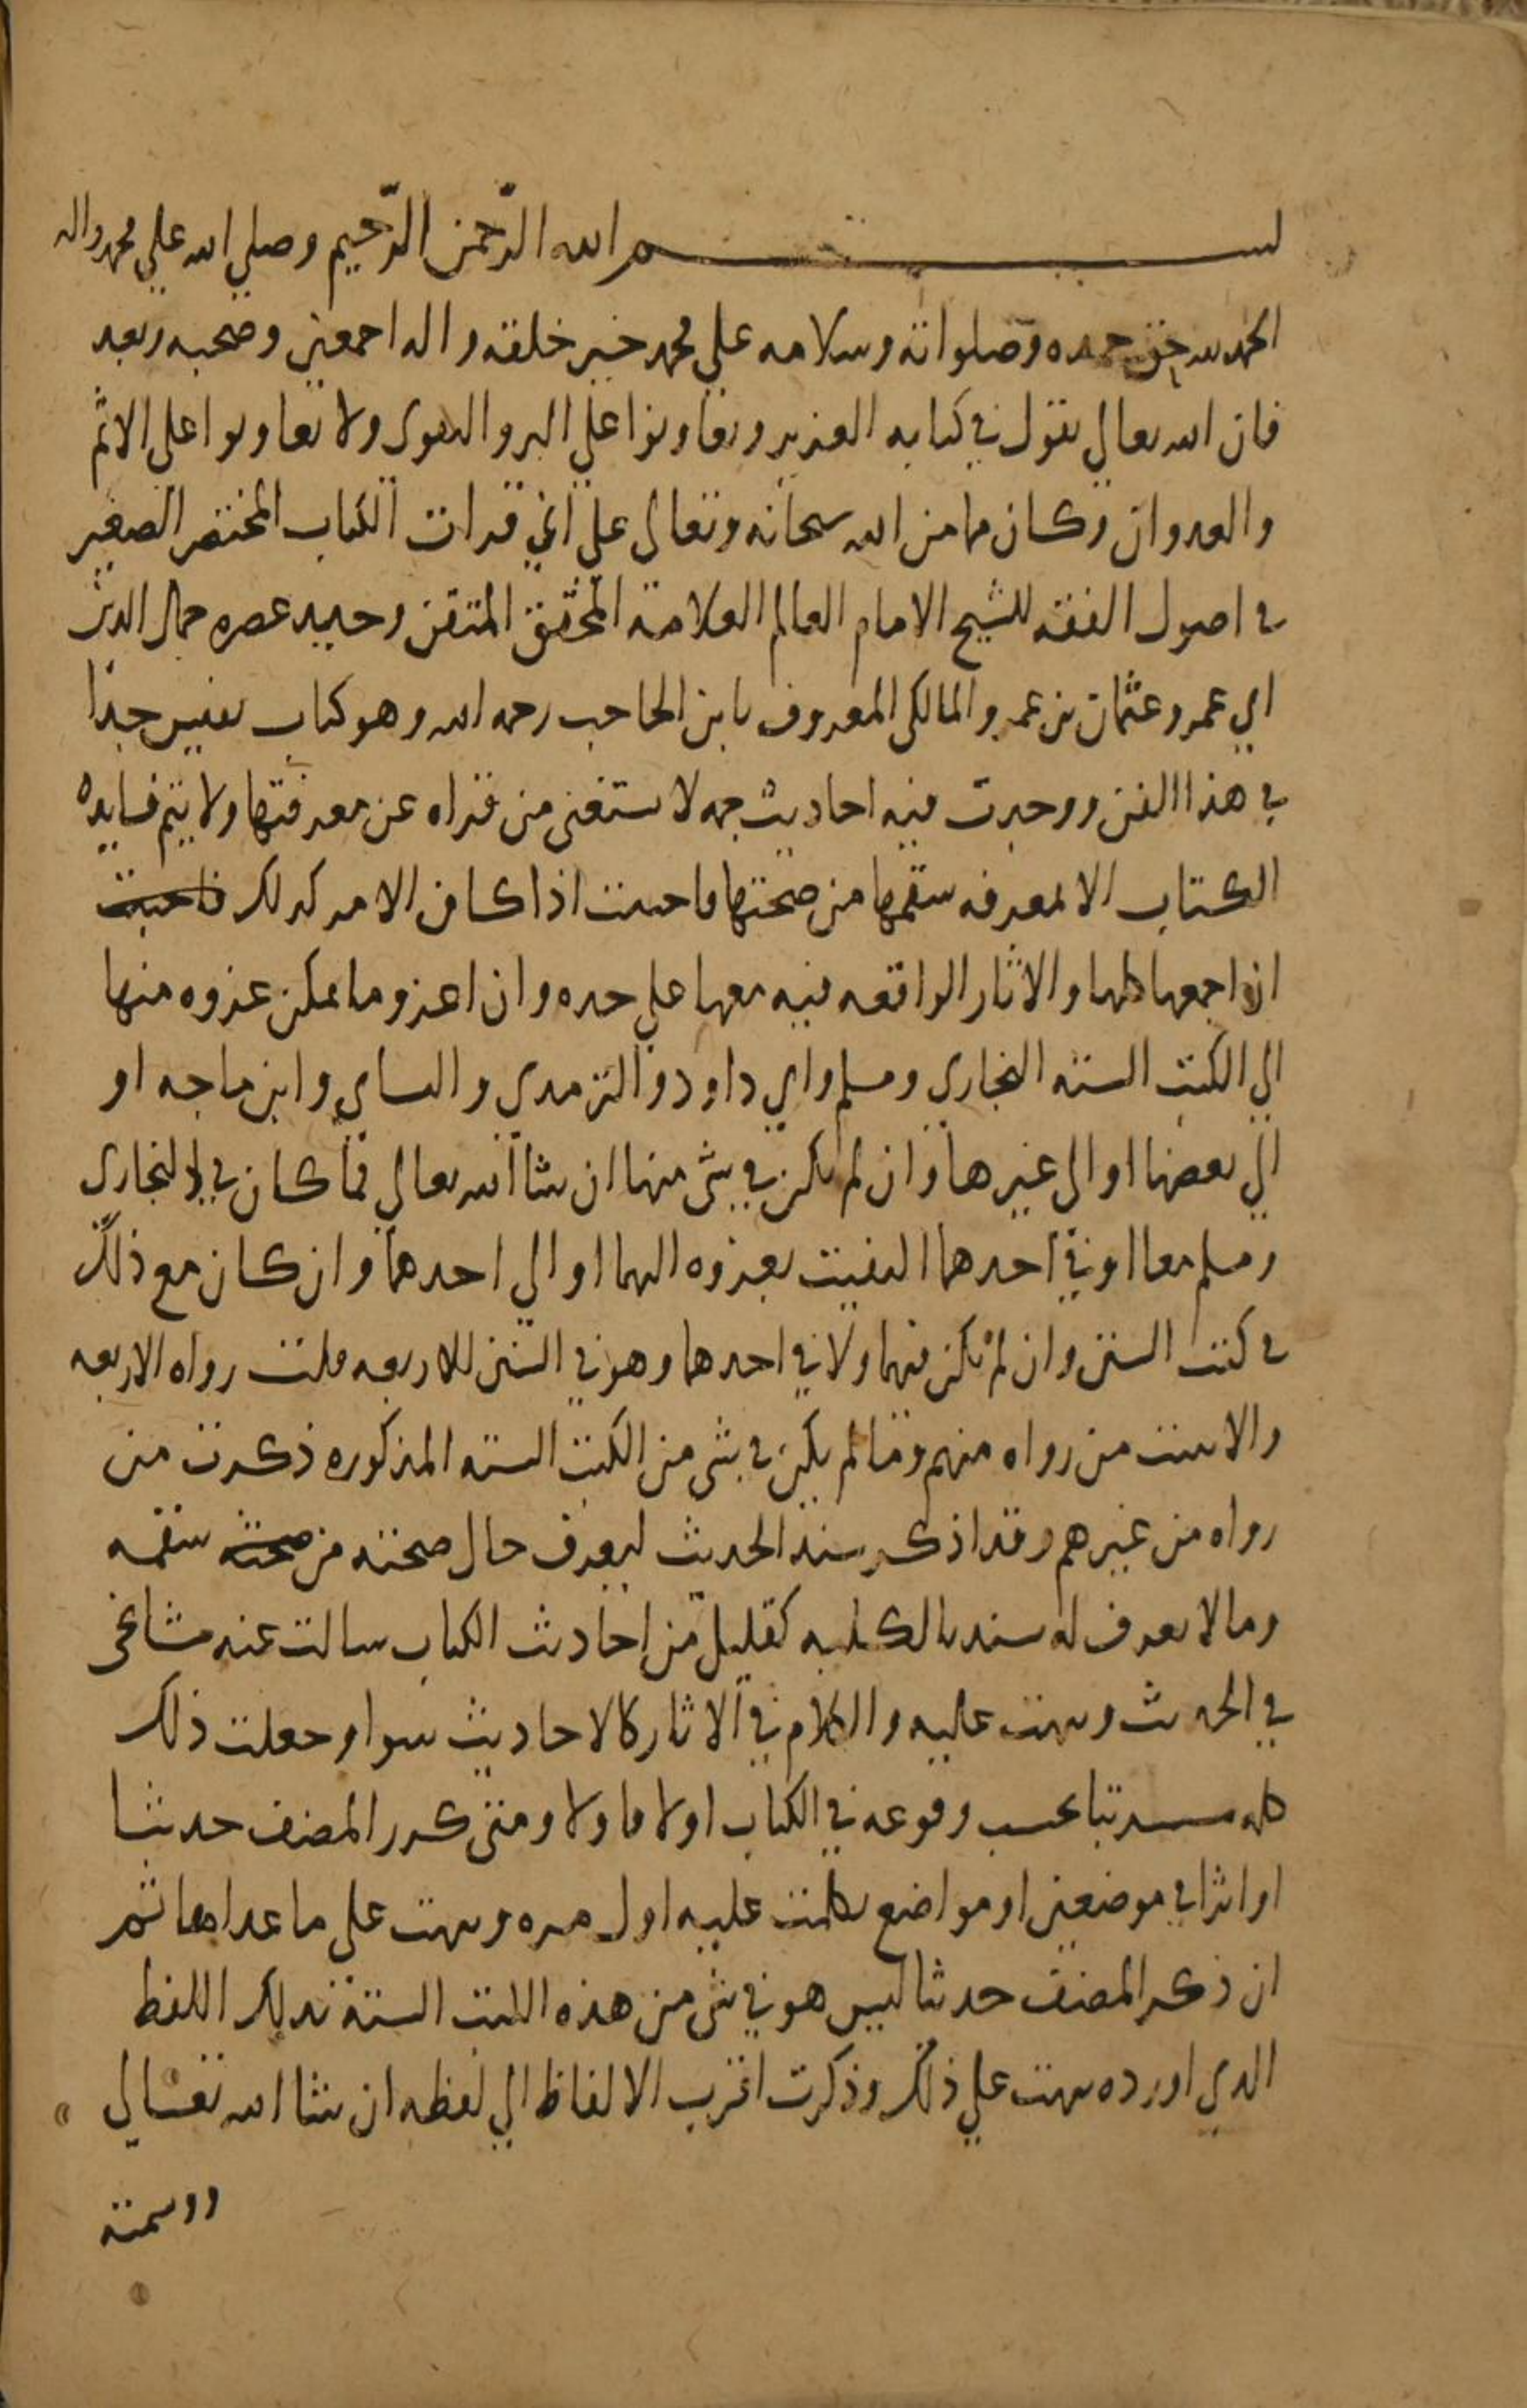 بسم الله الرحمن الرحيم وصلى الله على محمد واله
الحمد لله حق حمده وصلواته وسلامه على محمد خير خلقه واله اجمعين وصحبه وبعد
فان الله تعالى يقول في كتابه العزيز وتعاونوا على البر والتقوى ولا تعاونوا على الاثم
والعدوان وكان مما من الله سبحانه وتعالى على اني قرات الكتاب المختصر الصغير
في اصول الفقه للشيخ الامام العالم العلامة المحقق المتقن وحيد عصره جمال الدين
ابي عمرو عثمان بن عمرو المالكي المعروف بابن الحاجب رحمه الله وهو كتاب نفيس جدا
في هذا الفن ووجدت فيه احاديث جمه لا يستغنى من قراه عن معرفتها ولا يتم فايده
الكتاب الا بمعرفه سقمها من صحتها فاحببت اذا كان الامر كذلك فاحببت
ان اجمعها كلها والاثار الواقعه فيه معها على حده وان اعزو ما يمكن عزوه منها
الى الكتب الستة البخاري ومسلم وابي داود والترمذي والنساي وابن ماجه او
الى بعضها او الى غيرها وان لم يكن في شي منها ان شا الله تعالى فما كان في البخاري
ومسلم معا او في احدهما اكتفيت بعزوه اليهما او الى احدهما وان كان مع ذلك
في كتب السنن وان لم يكن فيهما ولا في احدهما وهو في السنن الاربعه قلت رواه الاربعه
والا بينت من رواه منهم وما لم يكن في شي من الكتب الستة المذكوره ذكرت من
رواه من غيرهم وقد اذكر سند الحديث ليعرف حال صحته من صحته سقمه
وما لا يعرف له سند بالكليه كقليل من احاديث الكتاب سالت عنه مشايخي
في الحديث ونبهت عليه والكلام في الاثار كالاحاديث سوا وجعلت ذلك
كله مرتبا بحسب وقوعه في الكتاب اولا فاولا ومتى كرر المصنف حديثا
او اثرا في موضعين او مواضع تكلمت عليه اول مره ونبهت على ما عداها ثم
ان ذكر المصنف حديثا ليس هو في شي من هذه الكتب الستة بذلك اللفظ
الذي اورده نبهت على ذلك وذكرت اقرب الالفاظ الى لفظه ان شا الله تعالى
ووسمته